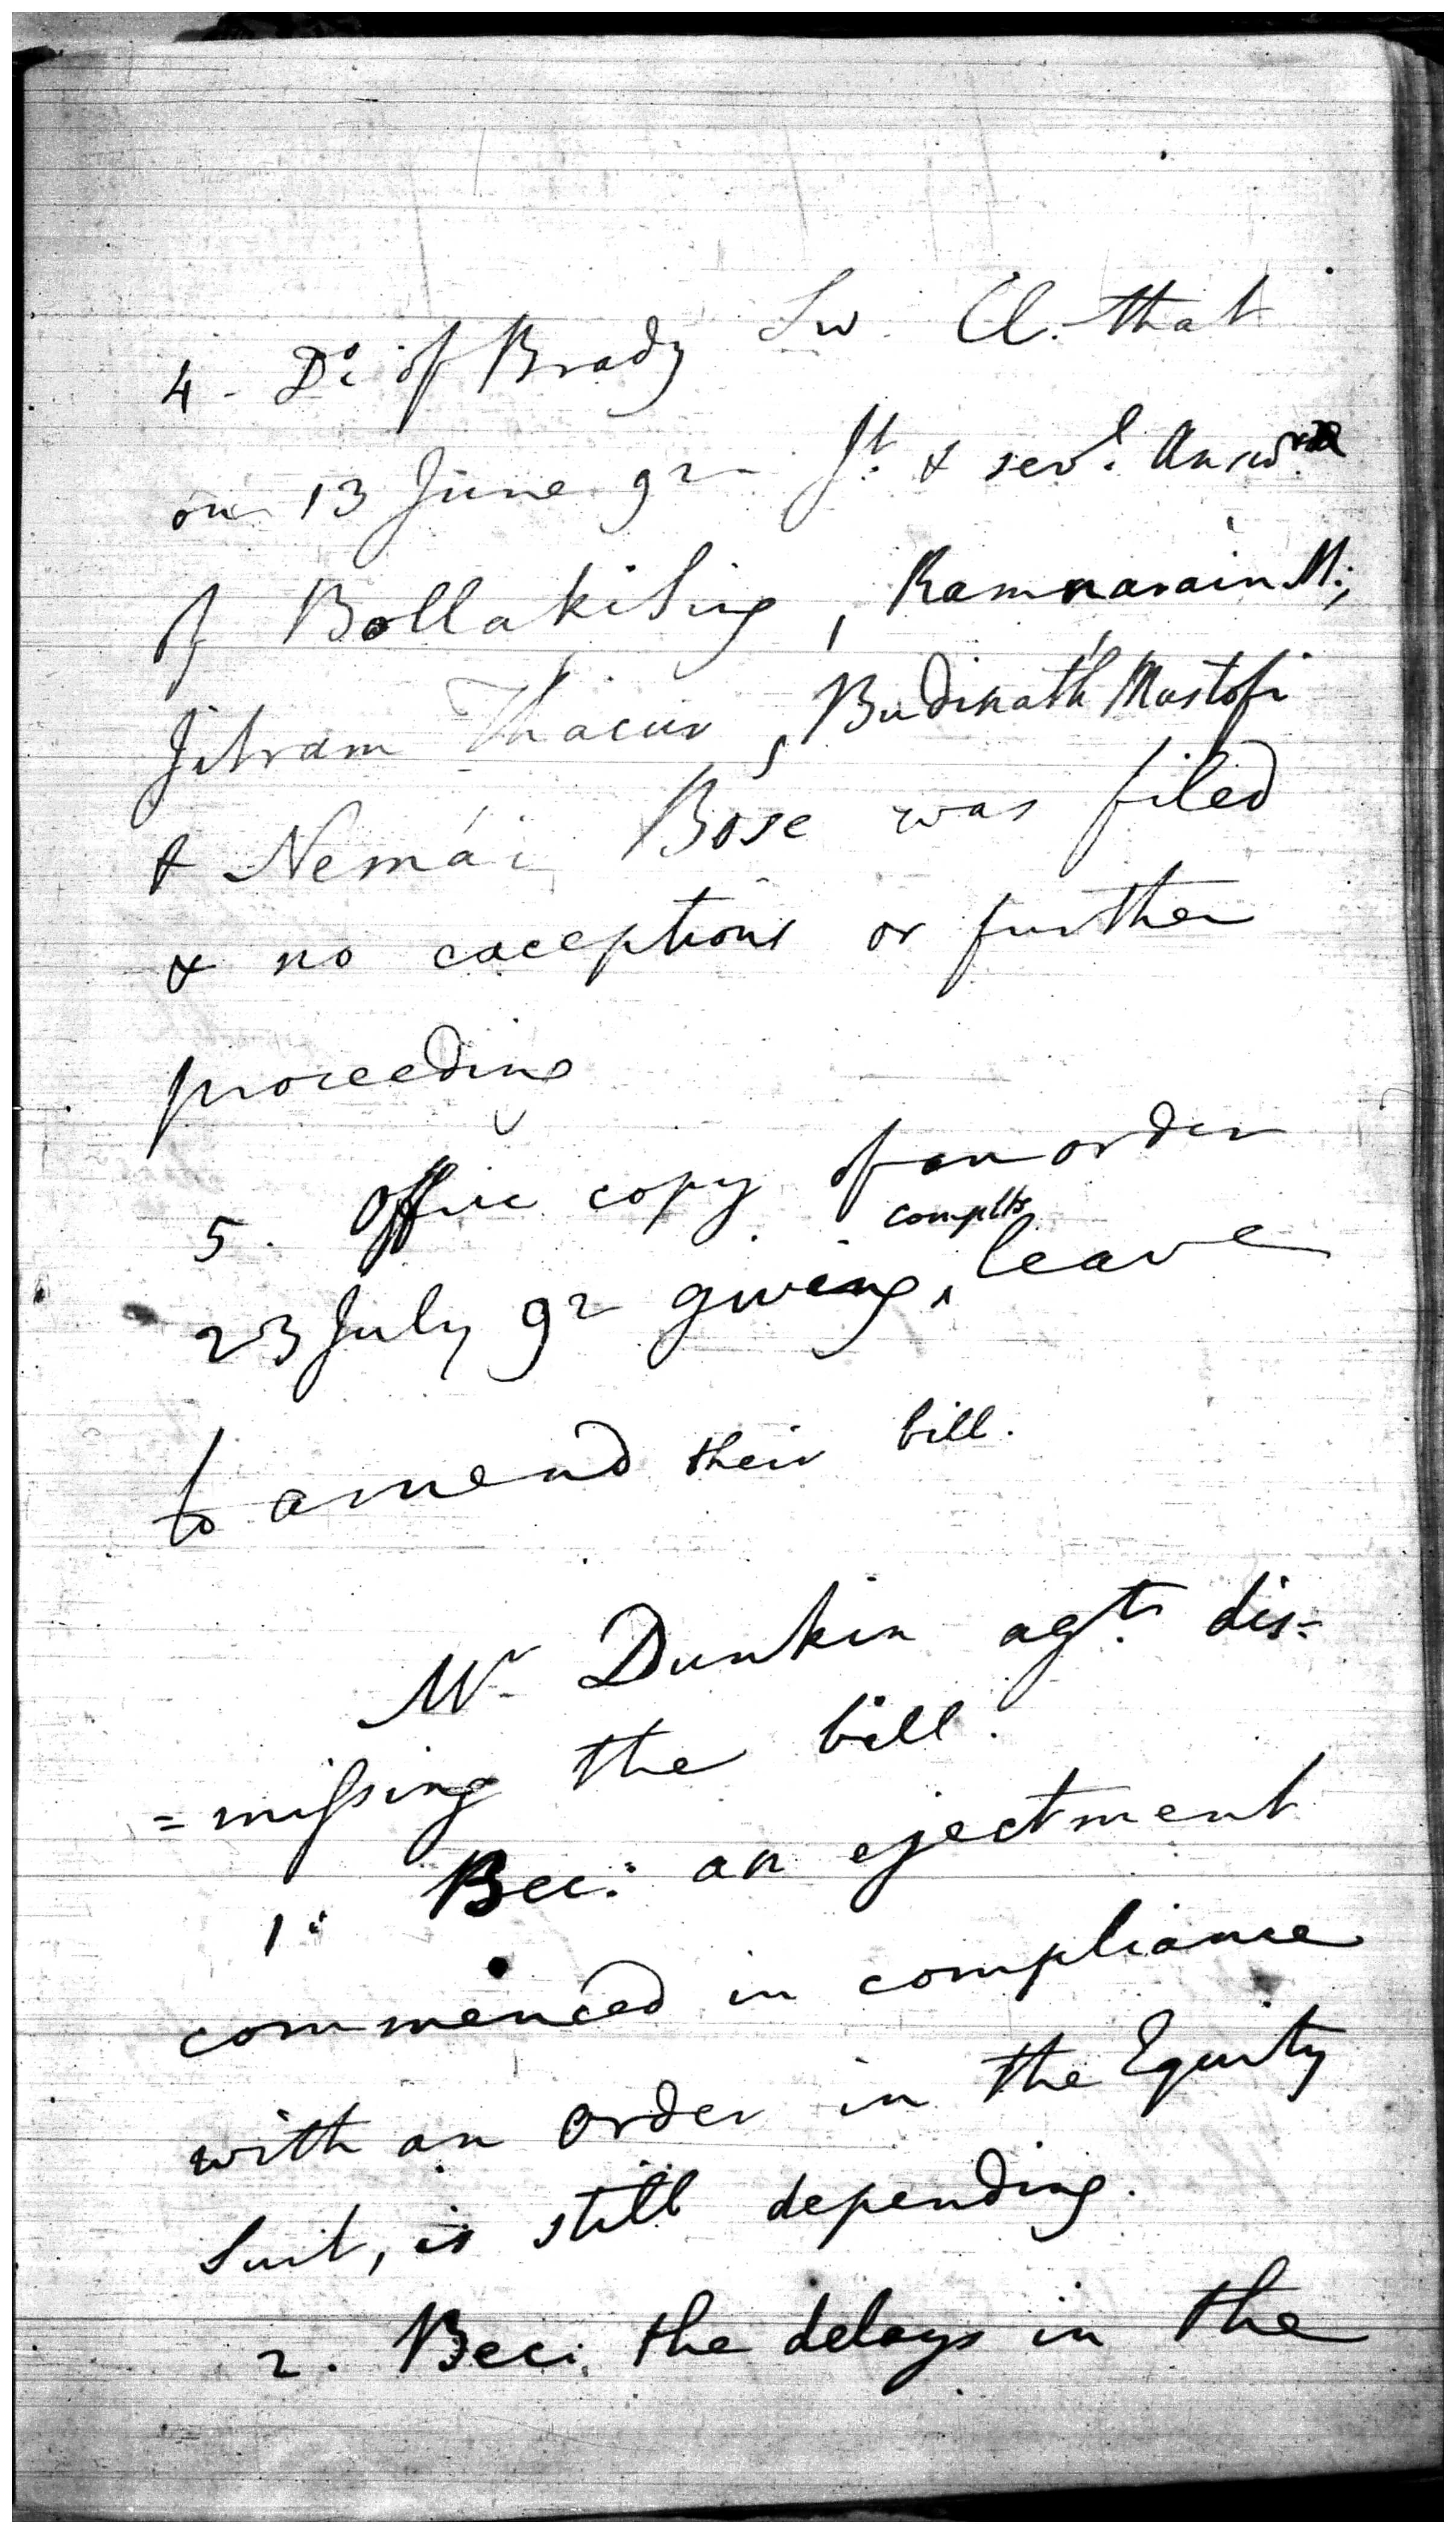 4 - Do. of Brady Sw. Cl. that
on 13 June 92 Jt. & sevl. Answr
of Bollakising, Ramnarain M;
Jitram Thacur, Budinath Mustofi
& Nemái Bose was filed
& no exceptions or further
proceeding
5. Office copy of an order
complts
23 July 92 giving ‸ leave
to amend their bill.
Mr Dunkin agt. dis=
=missing the bill.
1: Bec: an ejectment
commenced in compliance
with an order in the Equity
Suit, is still depending.
2. Bec: the delays in the